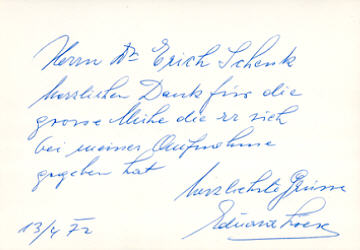 Herrn Dr Erich Schenk
herzlichen Dank für die
grosse Mühe die er sich
bei meiner Aufnahme
gegeben hat
herzlichste Grüsse
Eduard
13/4 72